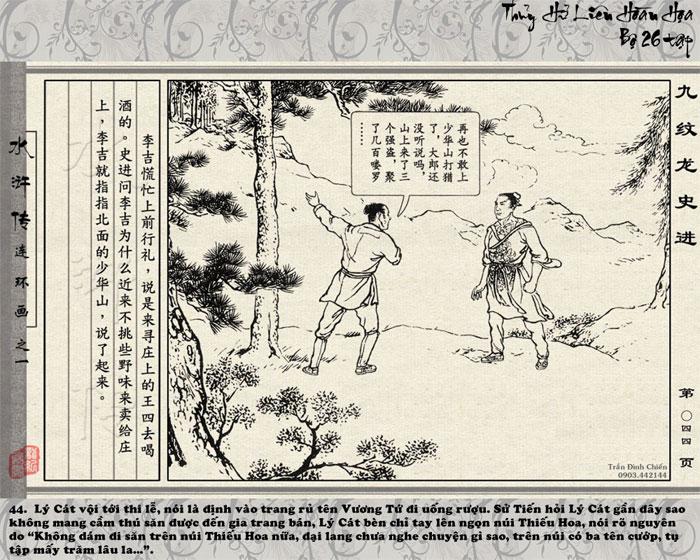 Thủy Hử Liên Hoàn Họa
Bộ 26 tập
九纹龙史进
水浒传连环画之一
李吉慌忙上前行礼，说是来寻庄上的王四去喝
酒的。史进问李吉为什么近来不挑些野味来卖给庄
上，李吉就指指北面的少华山，说了起来。
再也不敢上
少华山打猎
了，大郎还
没听说吗，
山上来了三
个强盗，聚
了几百喽罗
……
第〇四四页
Trần Đình Chiến
0903.442144
44. Lý Cát vội tới thi lễ, nói là định vào trang rủ tên Vương Tứ đi uống rượu. Sử Tiến hỏi Lý Cát gần đây sao
không mang cầm thú săn được đến gia trang bán, Lý Cát bèn chỉ tay lên ngọn núi Thiếu Hoa, nói rõ nguyên
do “Không dám đi săn trên núi Thiếu Hoa nữa, đại lang chưa nghe chuyện gì sao, trên núi có ba tên cướp, tụ
tập mấy trăm lâu la...”.